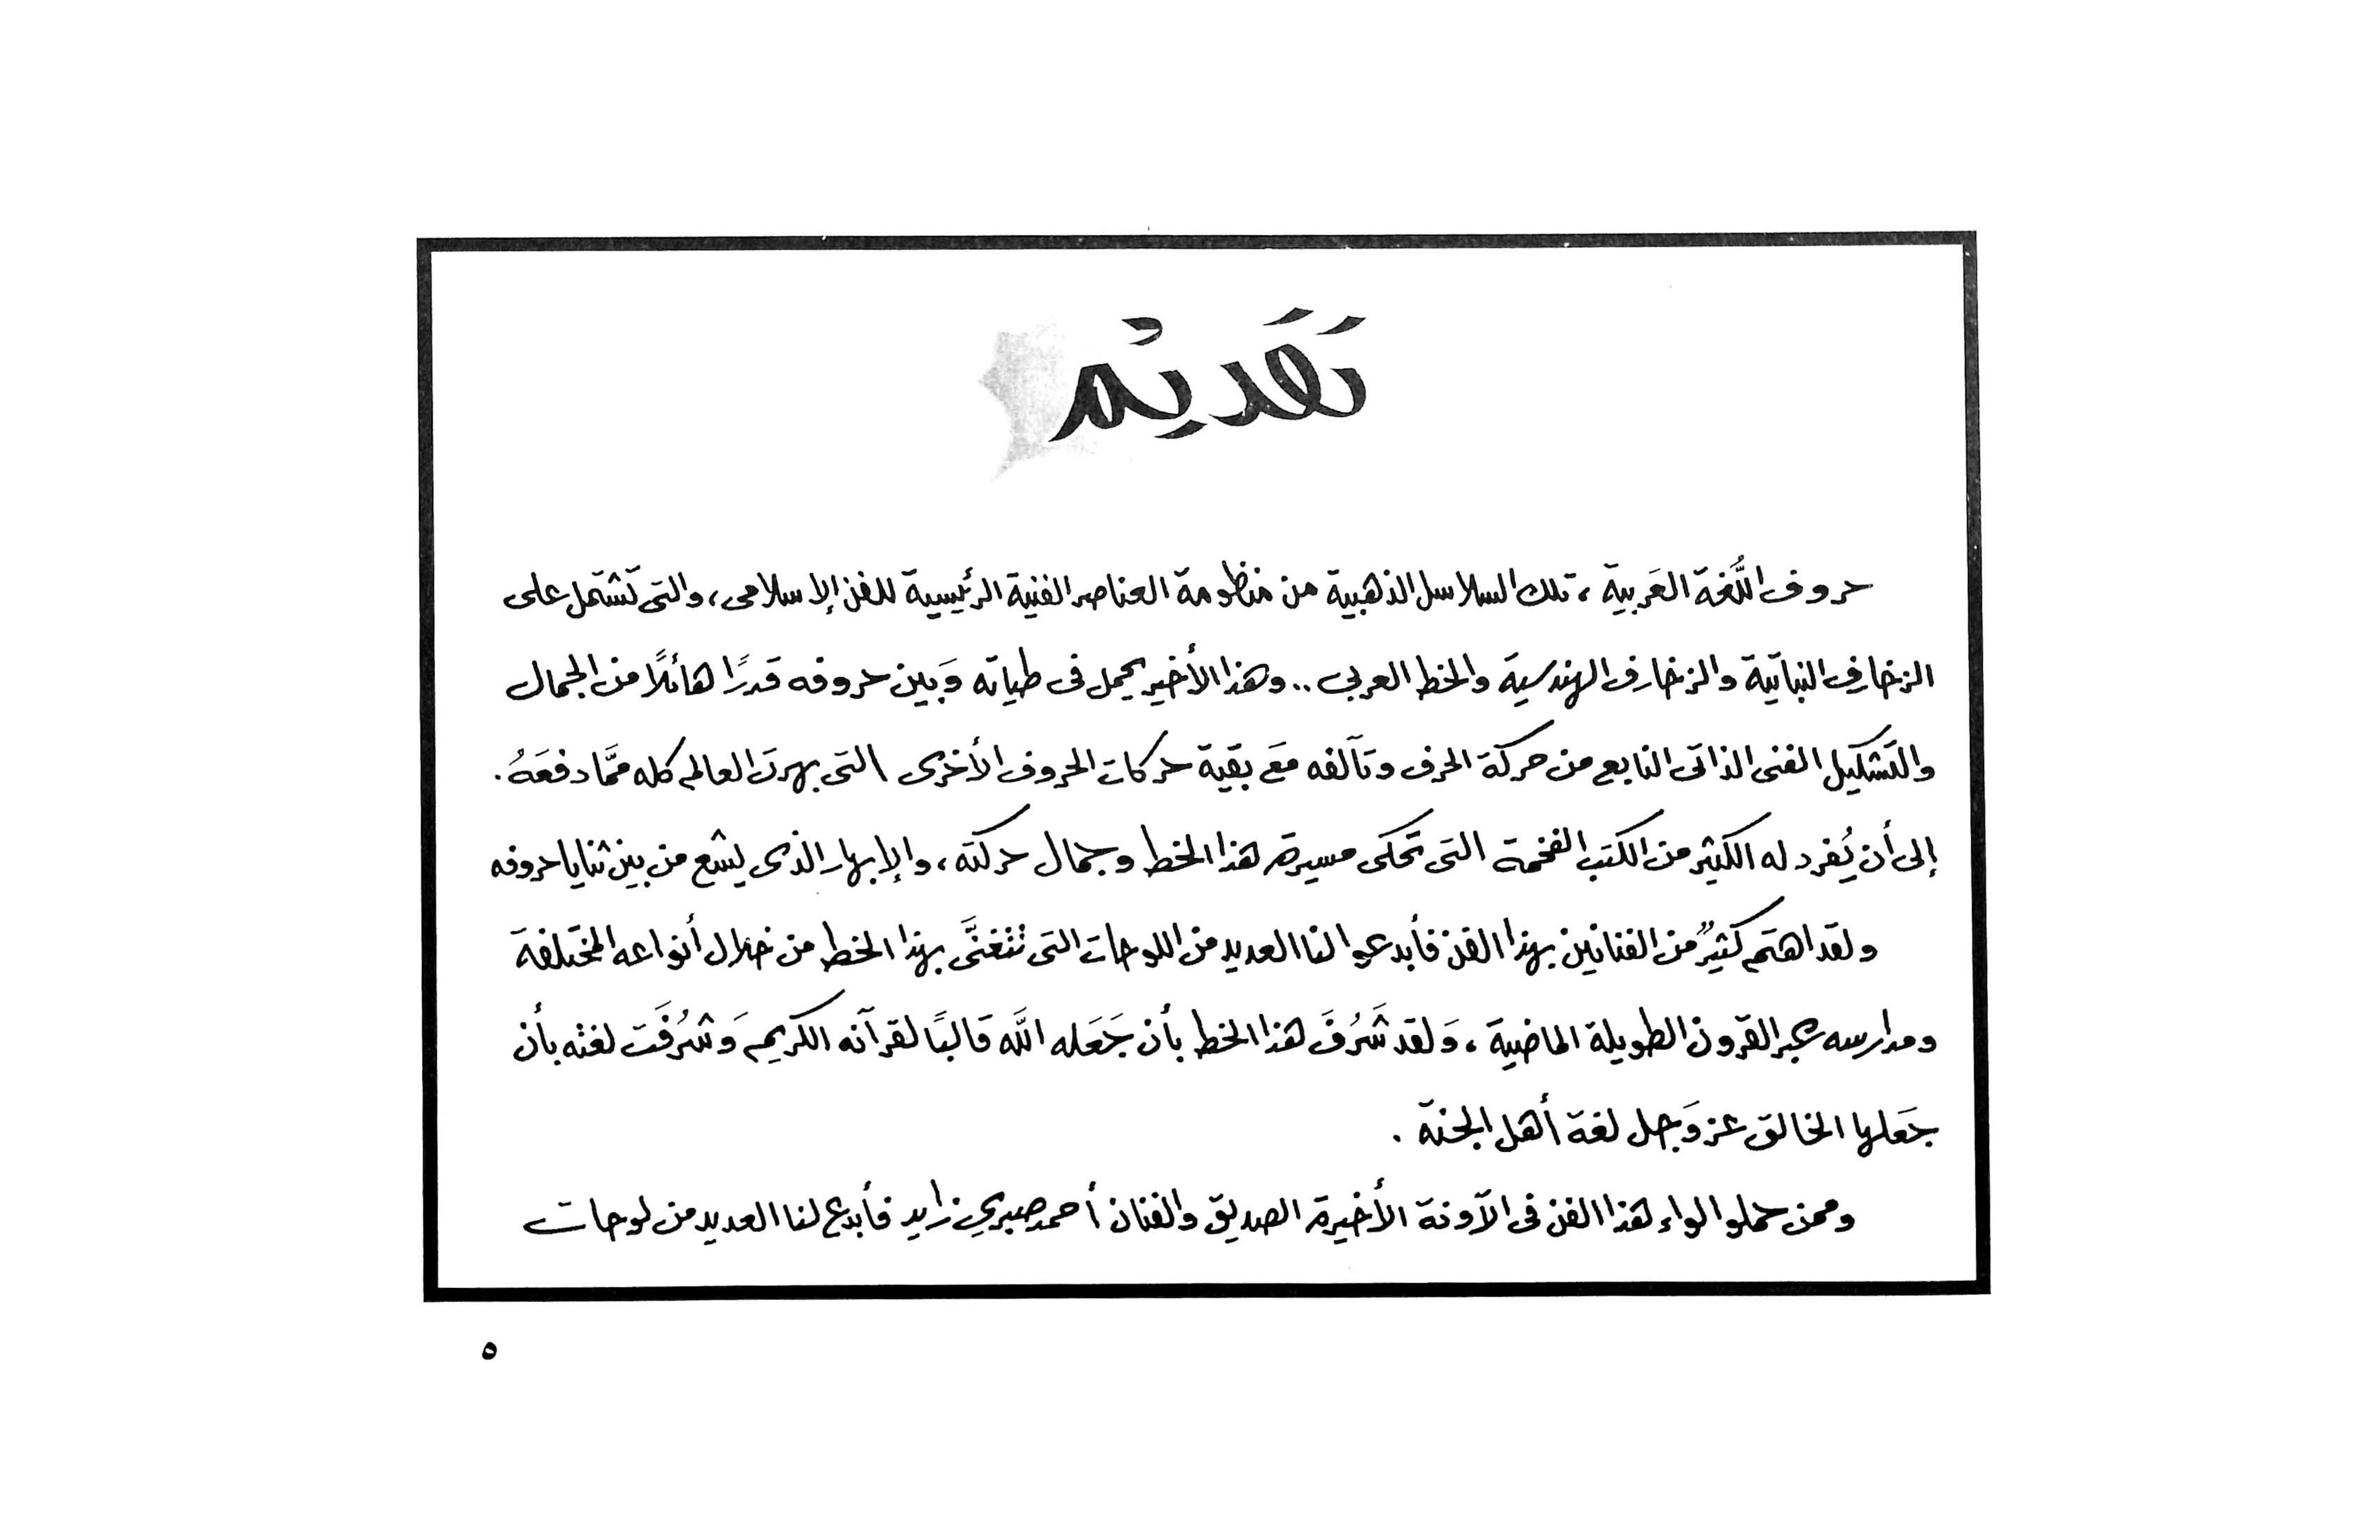 تَقَديْم
حروف اللُّغة العَربية ، تلك السلاسل الذهبية من منظومة العناصر الفنية الرئيسية للفن الإسلامى ، والتى تشتمل على
الزخارف النباتية والزخارف الهندسية والخط العربى .. وهذا الأخير يحمل فى طياته وَبين حروفه قدرًا هائلًا من الجمال
والتشكيل الفنى الذاتى النابع من حركة الحرف وتآلفه مَع بقية حركات الحروف الأخرى التى بهرت العالم كله ممَّا دفعَهُ .
إلى أن يُفرد له الكثير من الكتب الفخمة التى تحكى مسيرة هذا الخط وجمال حركته ، والإبهار الذى يشع من بين ثنايا حروفه
ولقد اهتم كثيرٌ من الفنانين بهذا الفن فأبدعوا لنا العديد من اللوحات التى تتغنَّى بهذا الخط من خلال أنواعه المختلفة
ومدارسه عبر القرون الطويلة الماضية ، وَلقد شَرُفَ هذا الخط بأن جَعَله اللَّه قالبًا لقرآنه الكريم وَشرُفَت لغته بأن
جَعَلها الخالق عز وَجل لغة أهل الجنة .
وممن حملوا لواء هذا الفن فى الآونة الأخيرة الصديق والفنان أحمد صبري زايد فأبدع لنا العديد من لوحات
٥